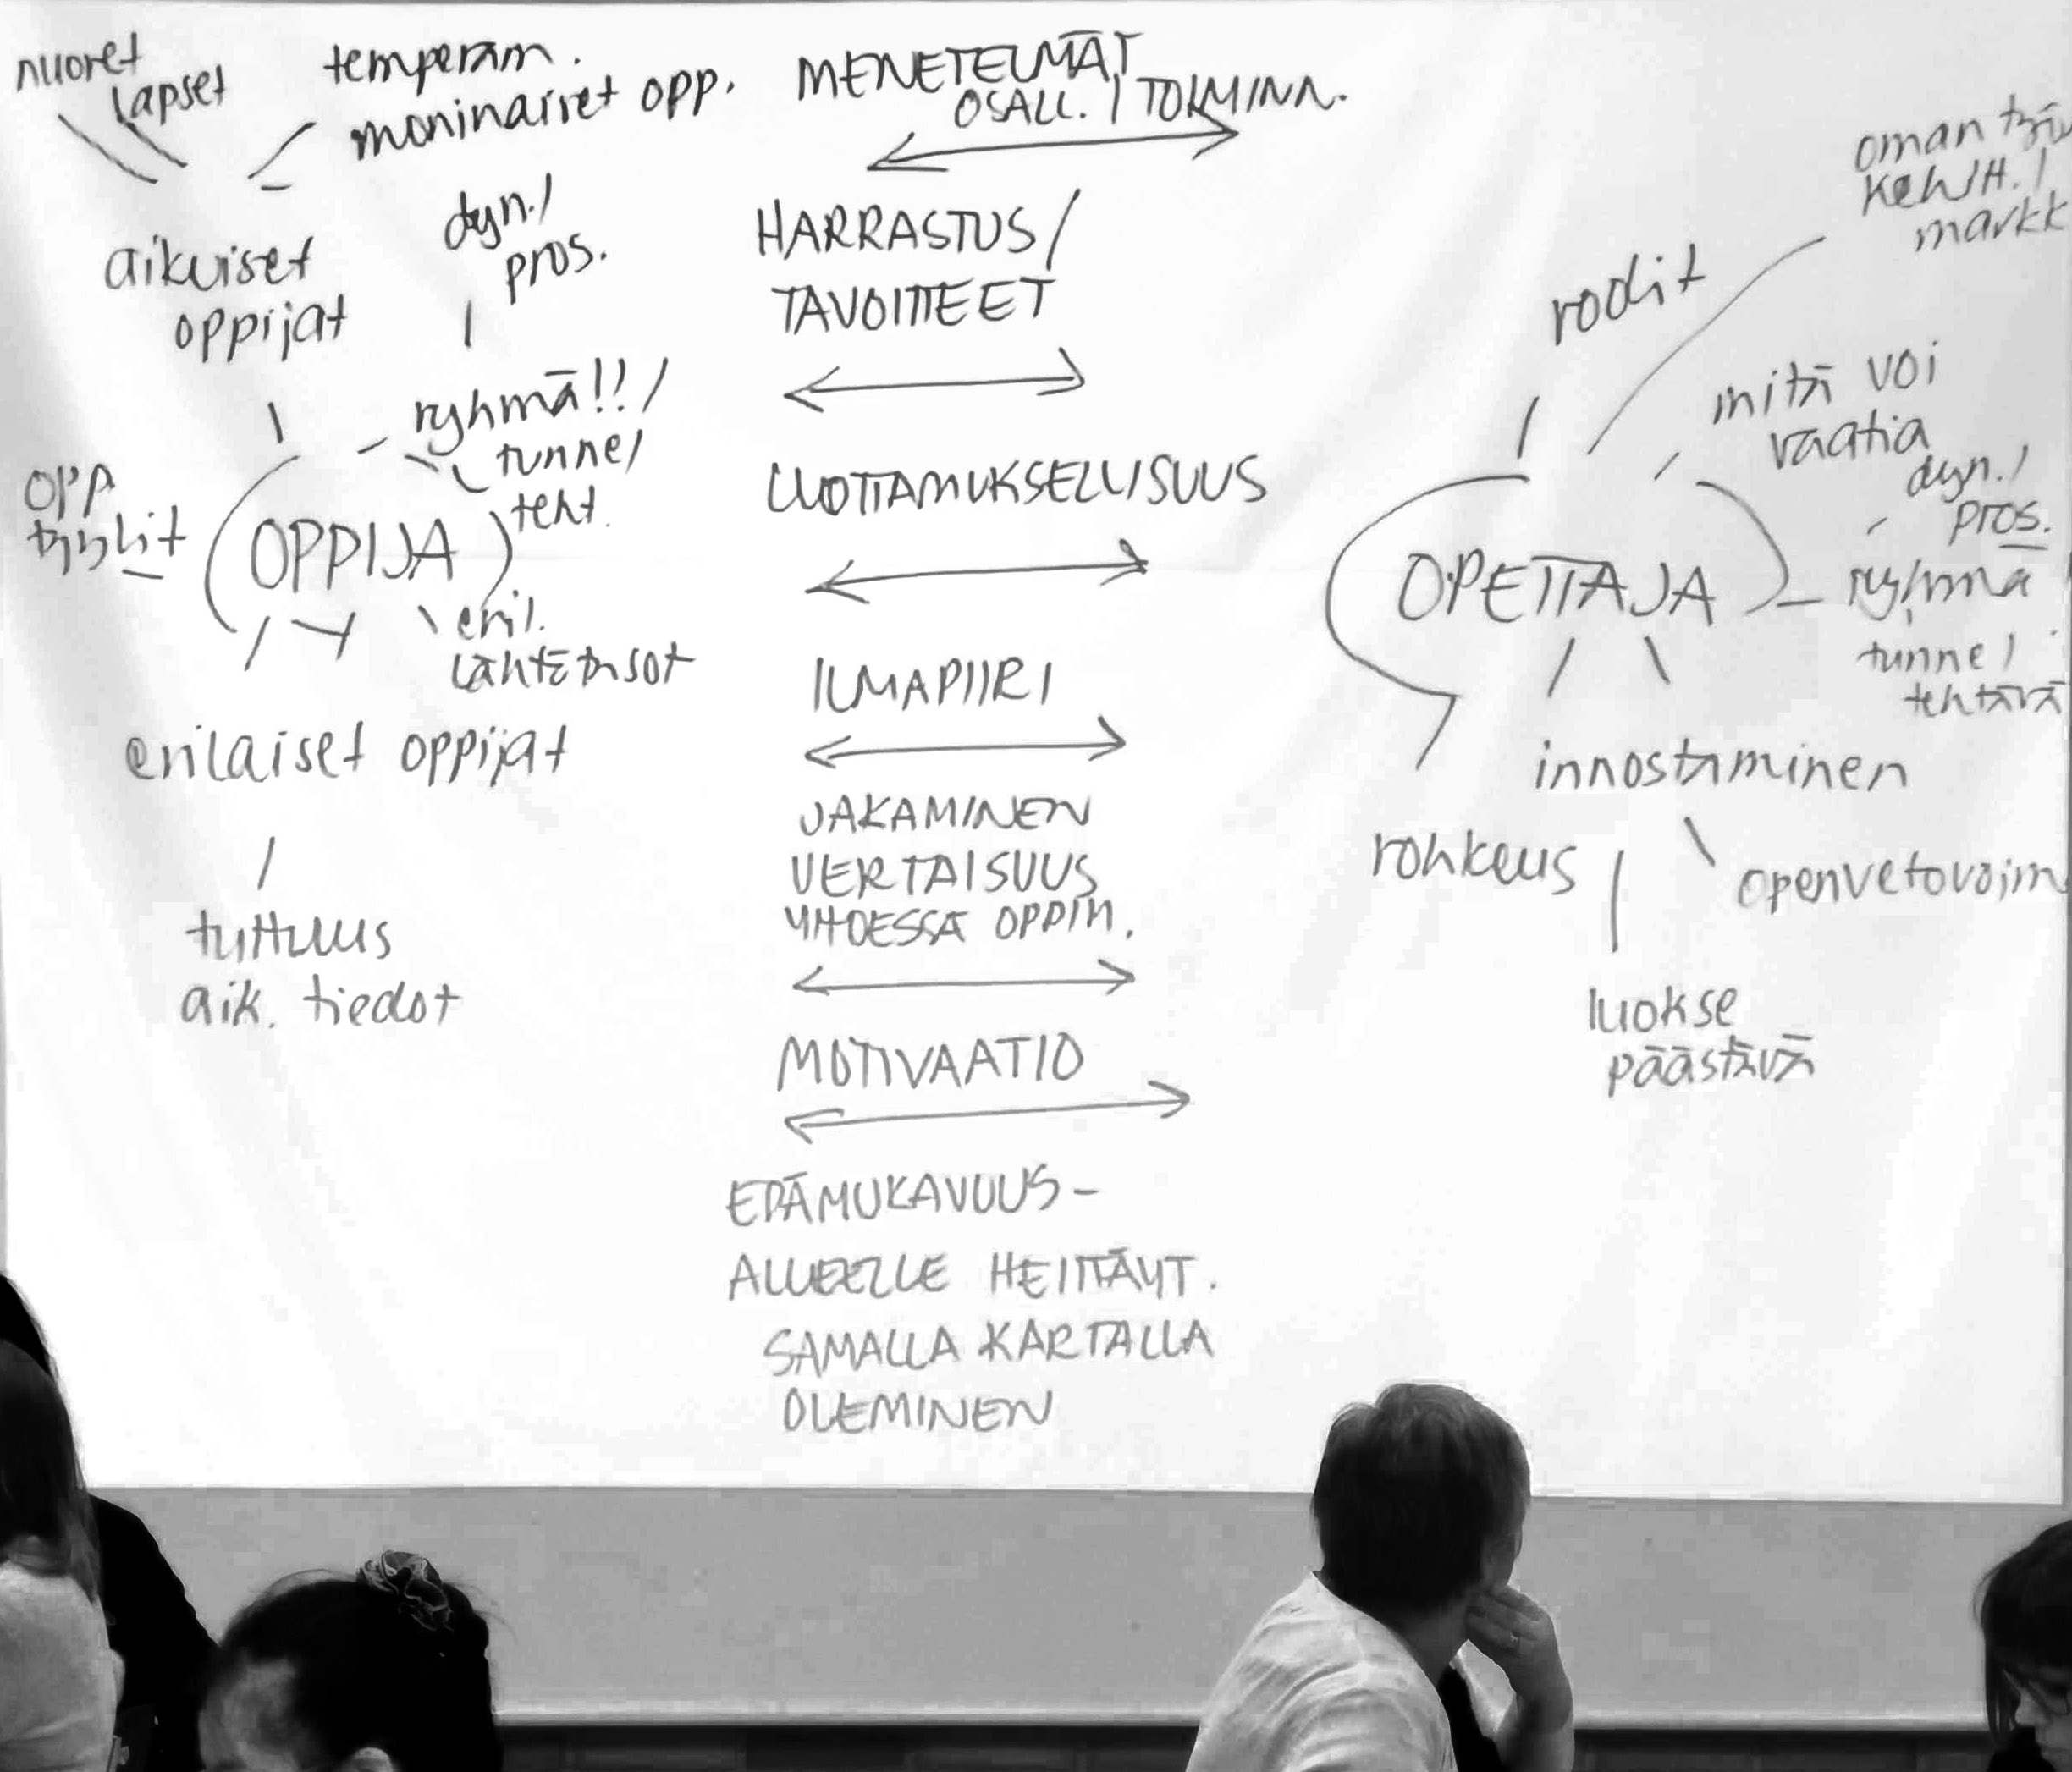 nuoret
lapset
temperam.
moninaiset opp.
aikuiset
oppijat
dyn./
pros.
ryhmä!!/
tunne/
teht.
opp
tyylit
OPPIJA
eril.
lähtötasot
erilaiset oppijat
tuttuus
aik. tiedot
MENETELMÄT
OSALL. / TOIMINN.
HARRASTUS/
TAVOITTEET
LUOTTAMUKSELLISUUS
ILMAPIIRI
JAKAMINEN
VERTAISUUS
YHDESSÄ OPPIM.
MOTIVAATIO
EPÄMUKAVUUS-
ALUEELLE HEITTÄYT.
SAMALLA KARTALLA
OLEMINEN
oman työn
kehitt. /
markk
roolit
mitä voi
vaatia
dyn./
pros.
OPETTAJA
ryhmä
tunne/
tehtävä
innostaminen
rohkeus
openvetovoim
luokse
päästävä